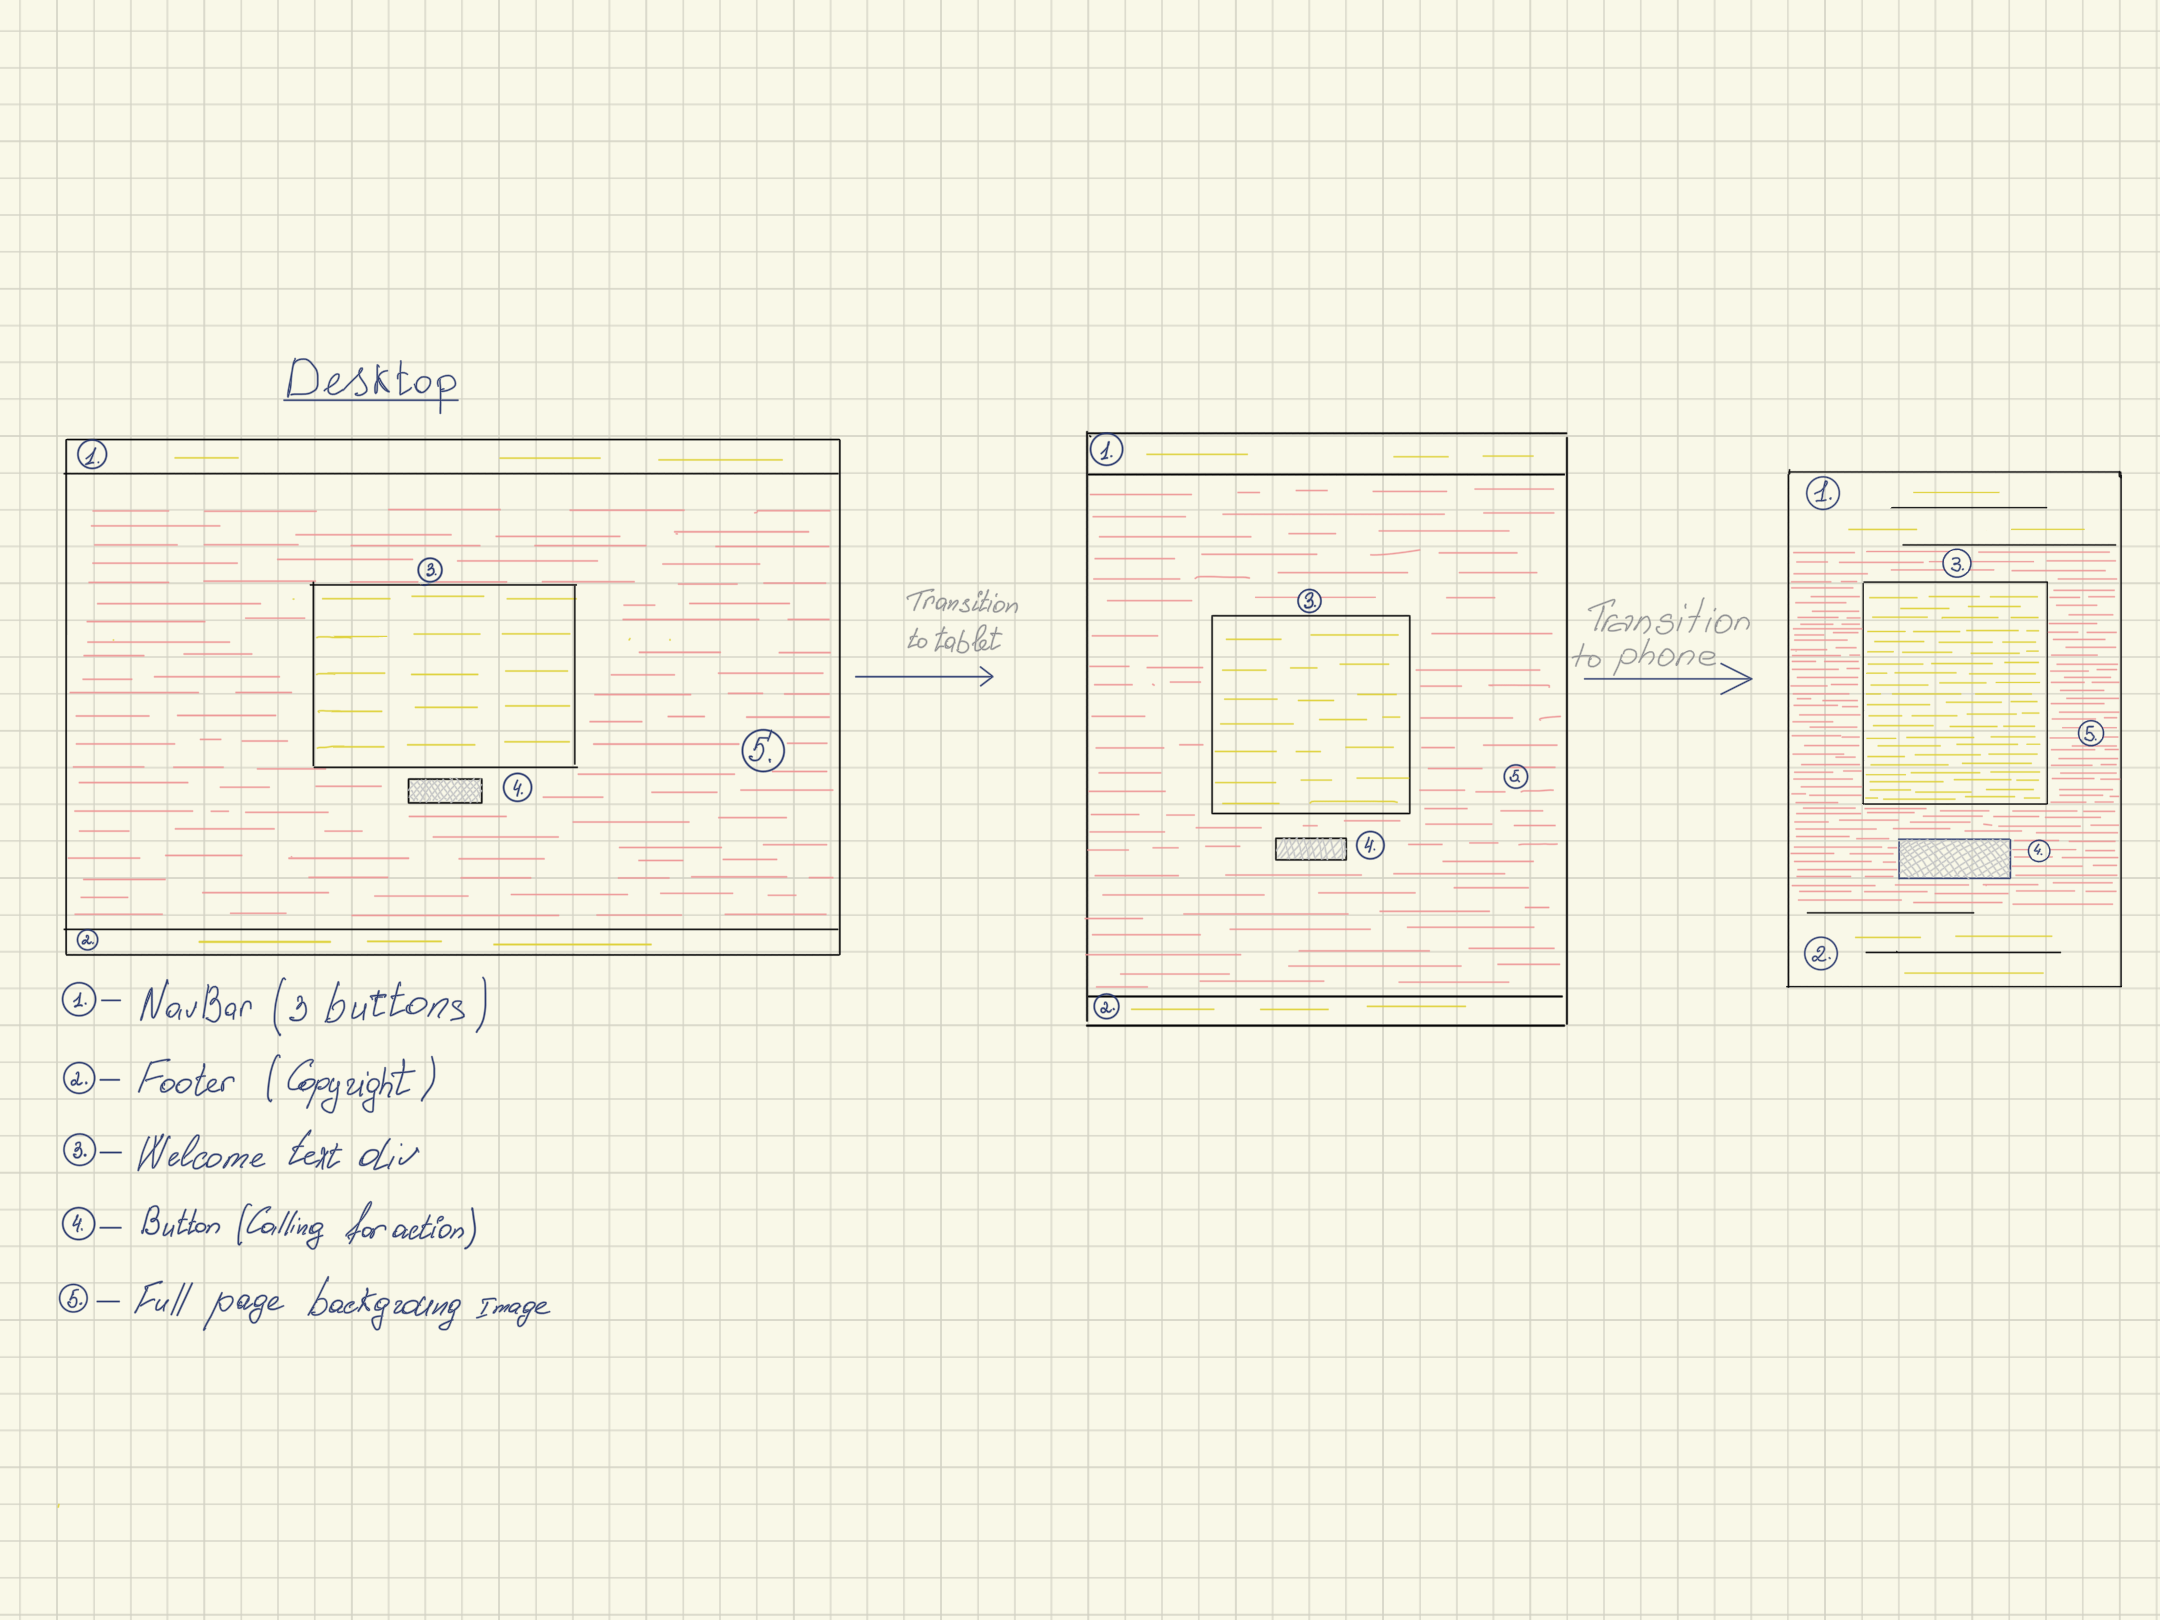 Desktop
1.
3.
4.
5.
2.
Transition
to tablet
1.
3.
5.
4.
2.
Transition
to phone
1.
3.
5.
4.
2.
1. — NavBar (3 buttons)
2. — Footer (Copyright)
3. — Welcome text div
4. — Button (Calling for action)
5. — Full page backgroung Image